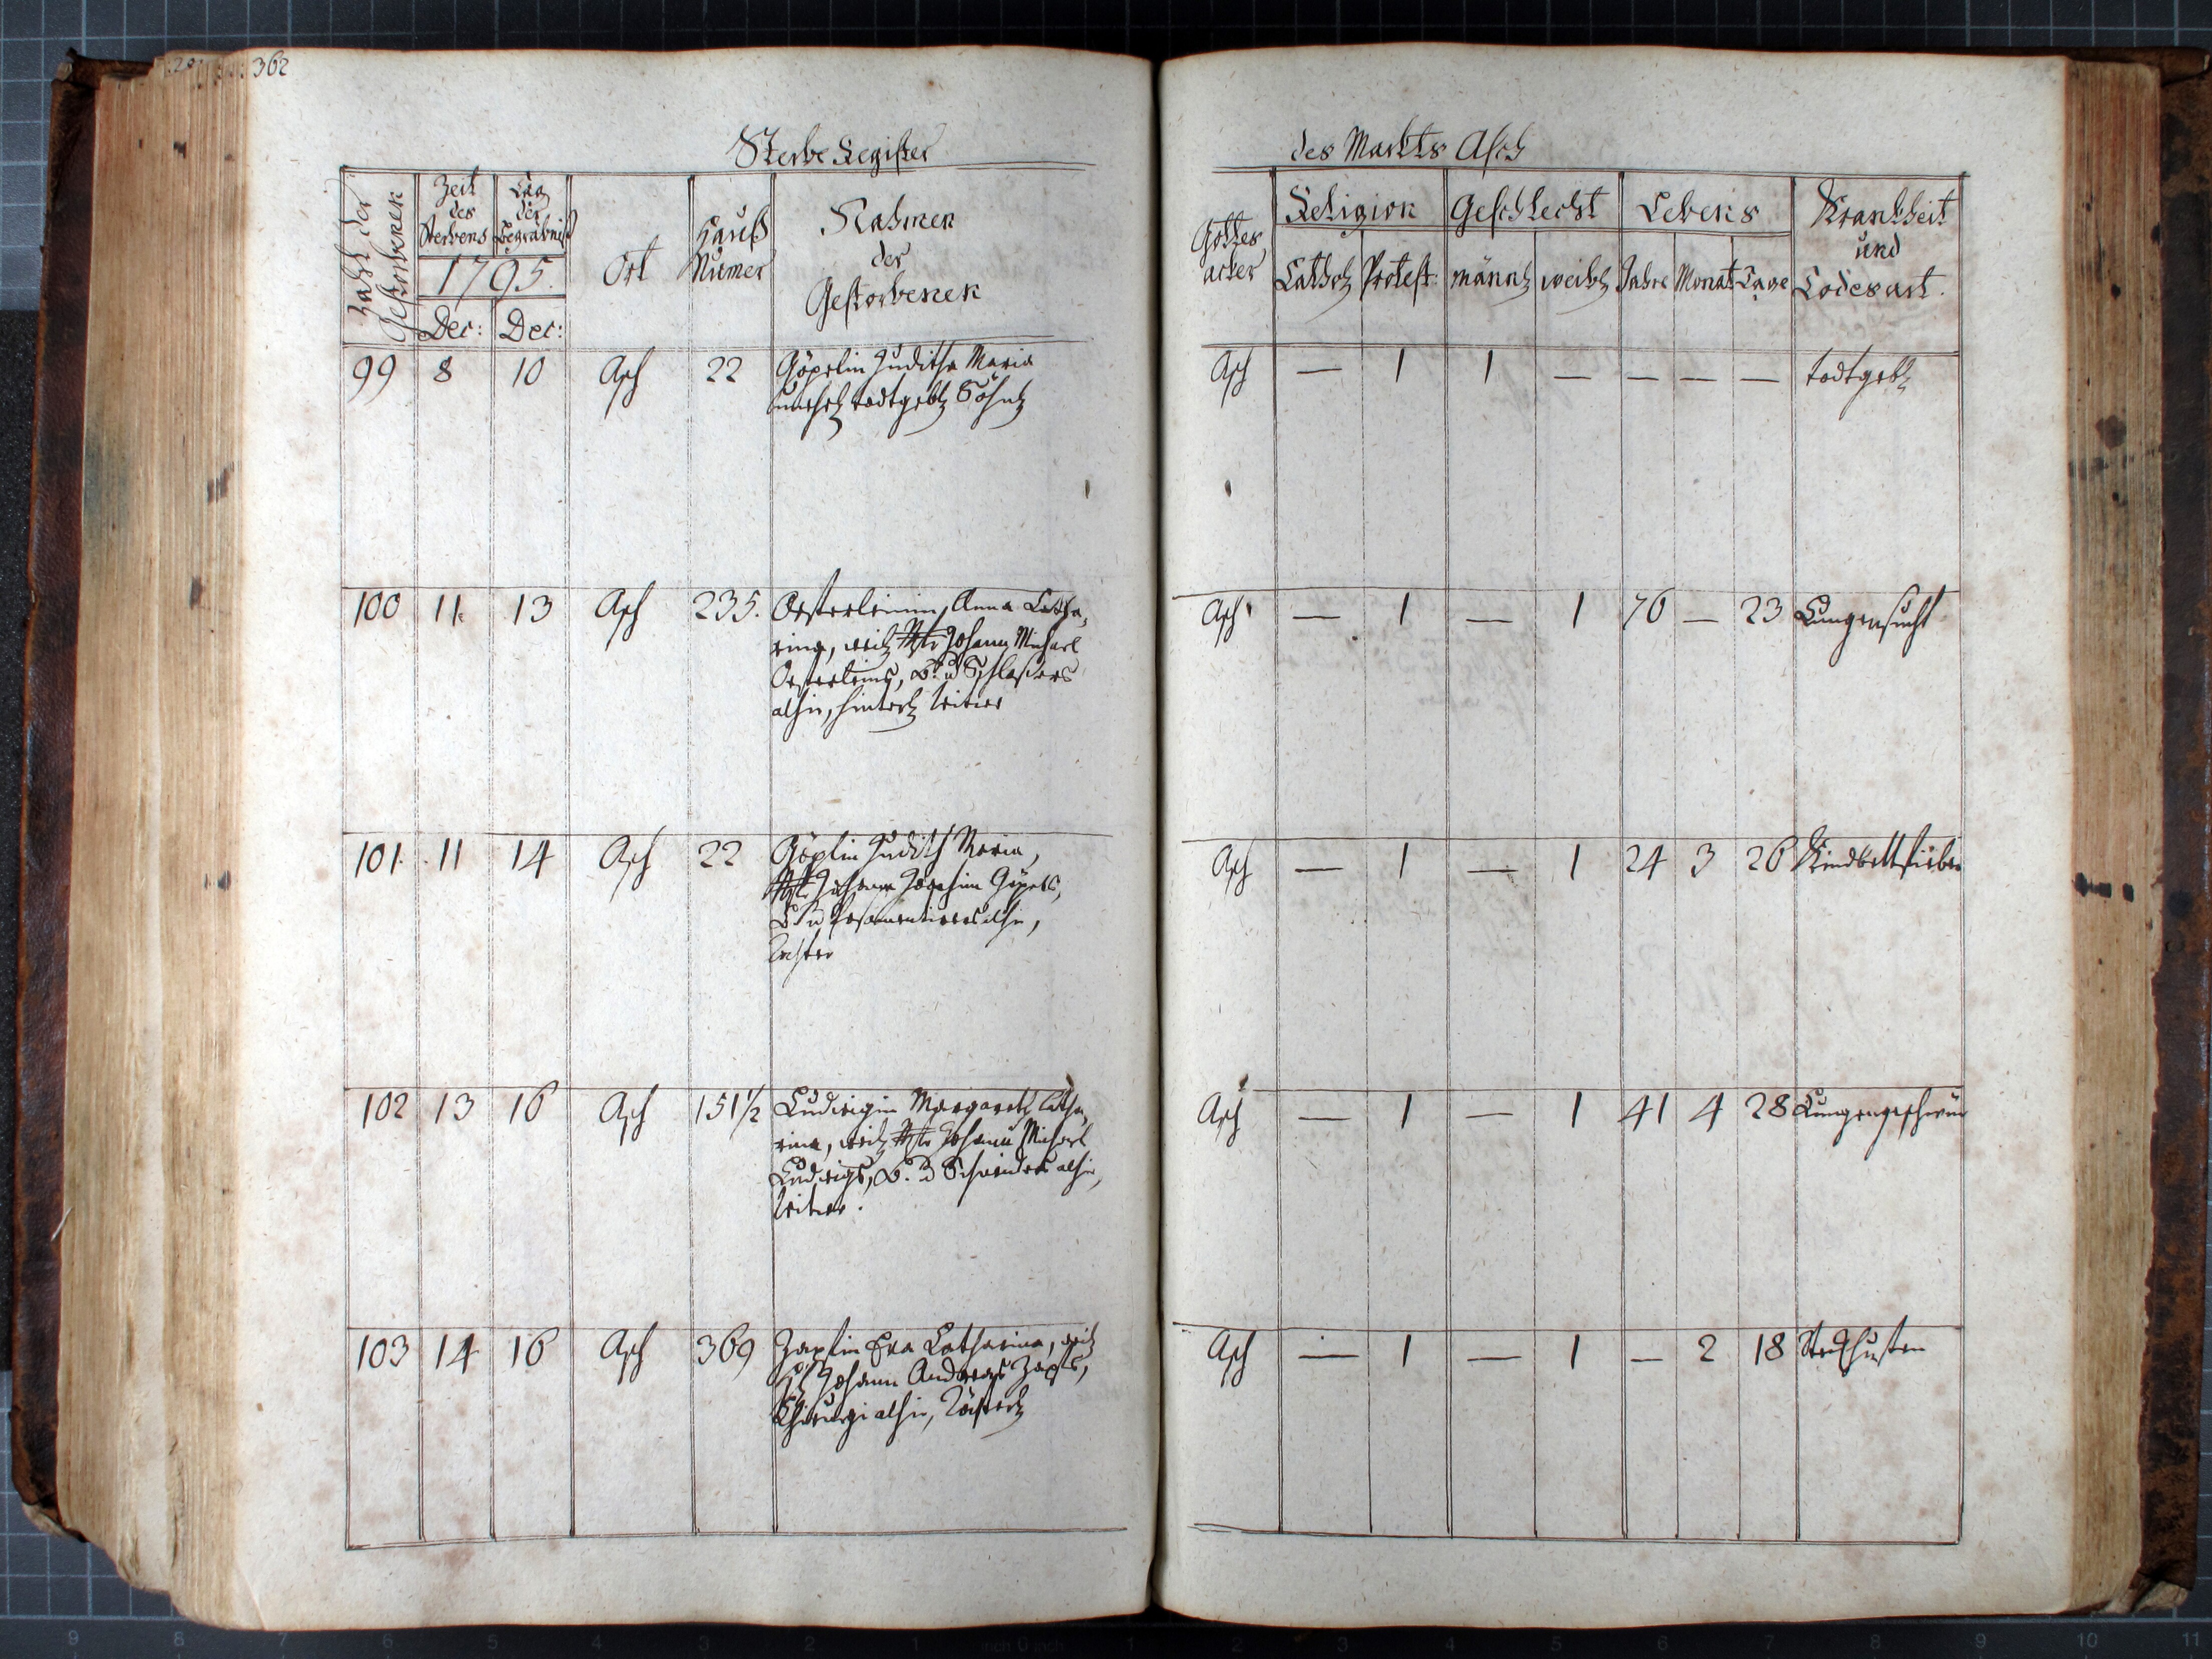 362
Sterbe Register
des Markts Asch
Zahl der Gestorbenen
Zeit des Sterbens
Tag der Begräbniß
1795.
Dec: Dec:
Ort
Hauß Numer
Nahmen der Gestorbenen
Gottes acker
Religion
Cathol Protest:
Geschlecht
männl weibl
Lebens
Jahre Monat Tage
Krankheit und Todesart.
99 8 10 Asch 22 Göpelin Juditha Maria
unehel todtgebl Söhnl
Asch — 1 1 — — — — todtgebl
100 11. 13 Asch 235. Oesterleinin, Anna Catha,
rina, weil Mstr Johann Michael
Oesterleins, B. u Schlaßers
alhie, hinterl Witwe
Asch — 1 — 1 76 — 23 Lungensucht
101. 11 14 Asch 22 Göplin Judith Maria,
Mstr Johann Joachim Göpels,
B u Posamentierers alhie,
Tochter
Asch — 1 — 1 24 3 26 Kindbettfieber
102 13 16 Asch 151½ Ludwigin Margareth Catha,
rina, weil Mstr Johann Michael
Ludwigs, B. u Schneiders alhie,
Witwe.
Asch — 1 — 1 41 4 28 Lungengeschwür
103 14 16 Asch 369 Zapfin Eva Catharina, weil
Johann Andreas Zapfs,
Chirurgi alhie, Töchterl
Asch — 1 — 1 — 2 18 Steckhusten